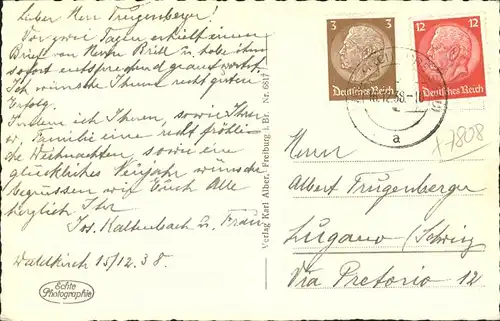 Lieber Herr Trugenberger!
Vor zwei Tagen erhielt einen
Brief von Herrn Brill u. habe ihm
sofort entsprechend geantwortet.
Ich wünsche Ihnen recht guten
Erfolg.
Indem ich Ihnen, sowie Ihrer
w. Familie eine recht fröhli-
che Weihnachten, sowie ein
glückliches Neujahr wünsche
begrüssen wir Euch Alle
herzlich Ihr
Jos. Kaltenbach u. Frau
Waldkirch 15/12.38.
Echte
Photographie
Verlag Karl Alber, Freiburg i. Br. Nr. 6817
3 3
Deutsches Reich
12 12
Deutsches Reich
12.38.-
a
+7808
Herrn
Albert Trugenberger
Lugano (Schweiz
Via Pretorio 12